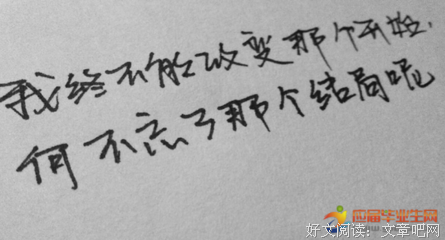 我终不能改变那个开始，
何不忘了那个结局呢
应届毕业生网
好文阅读：文章吧网